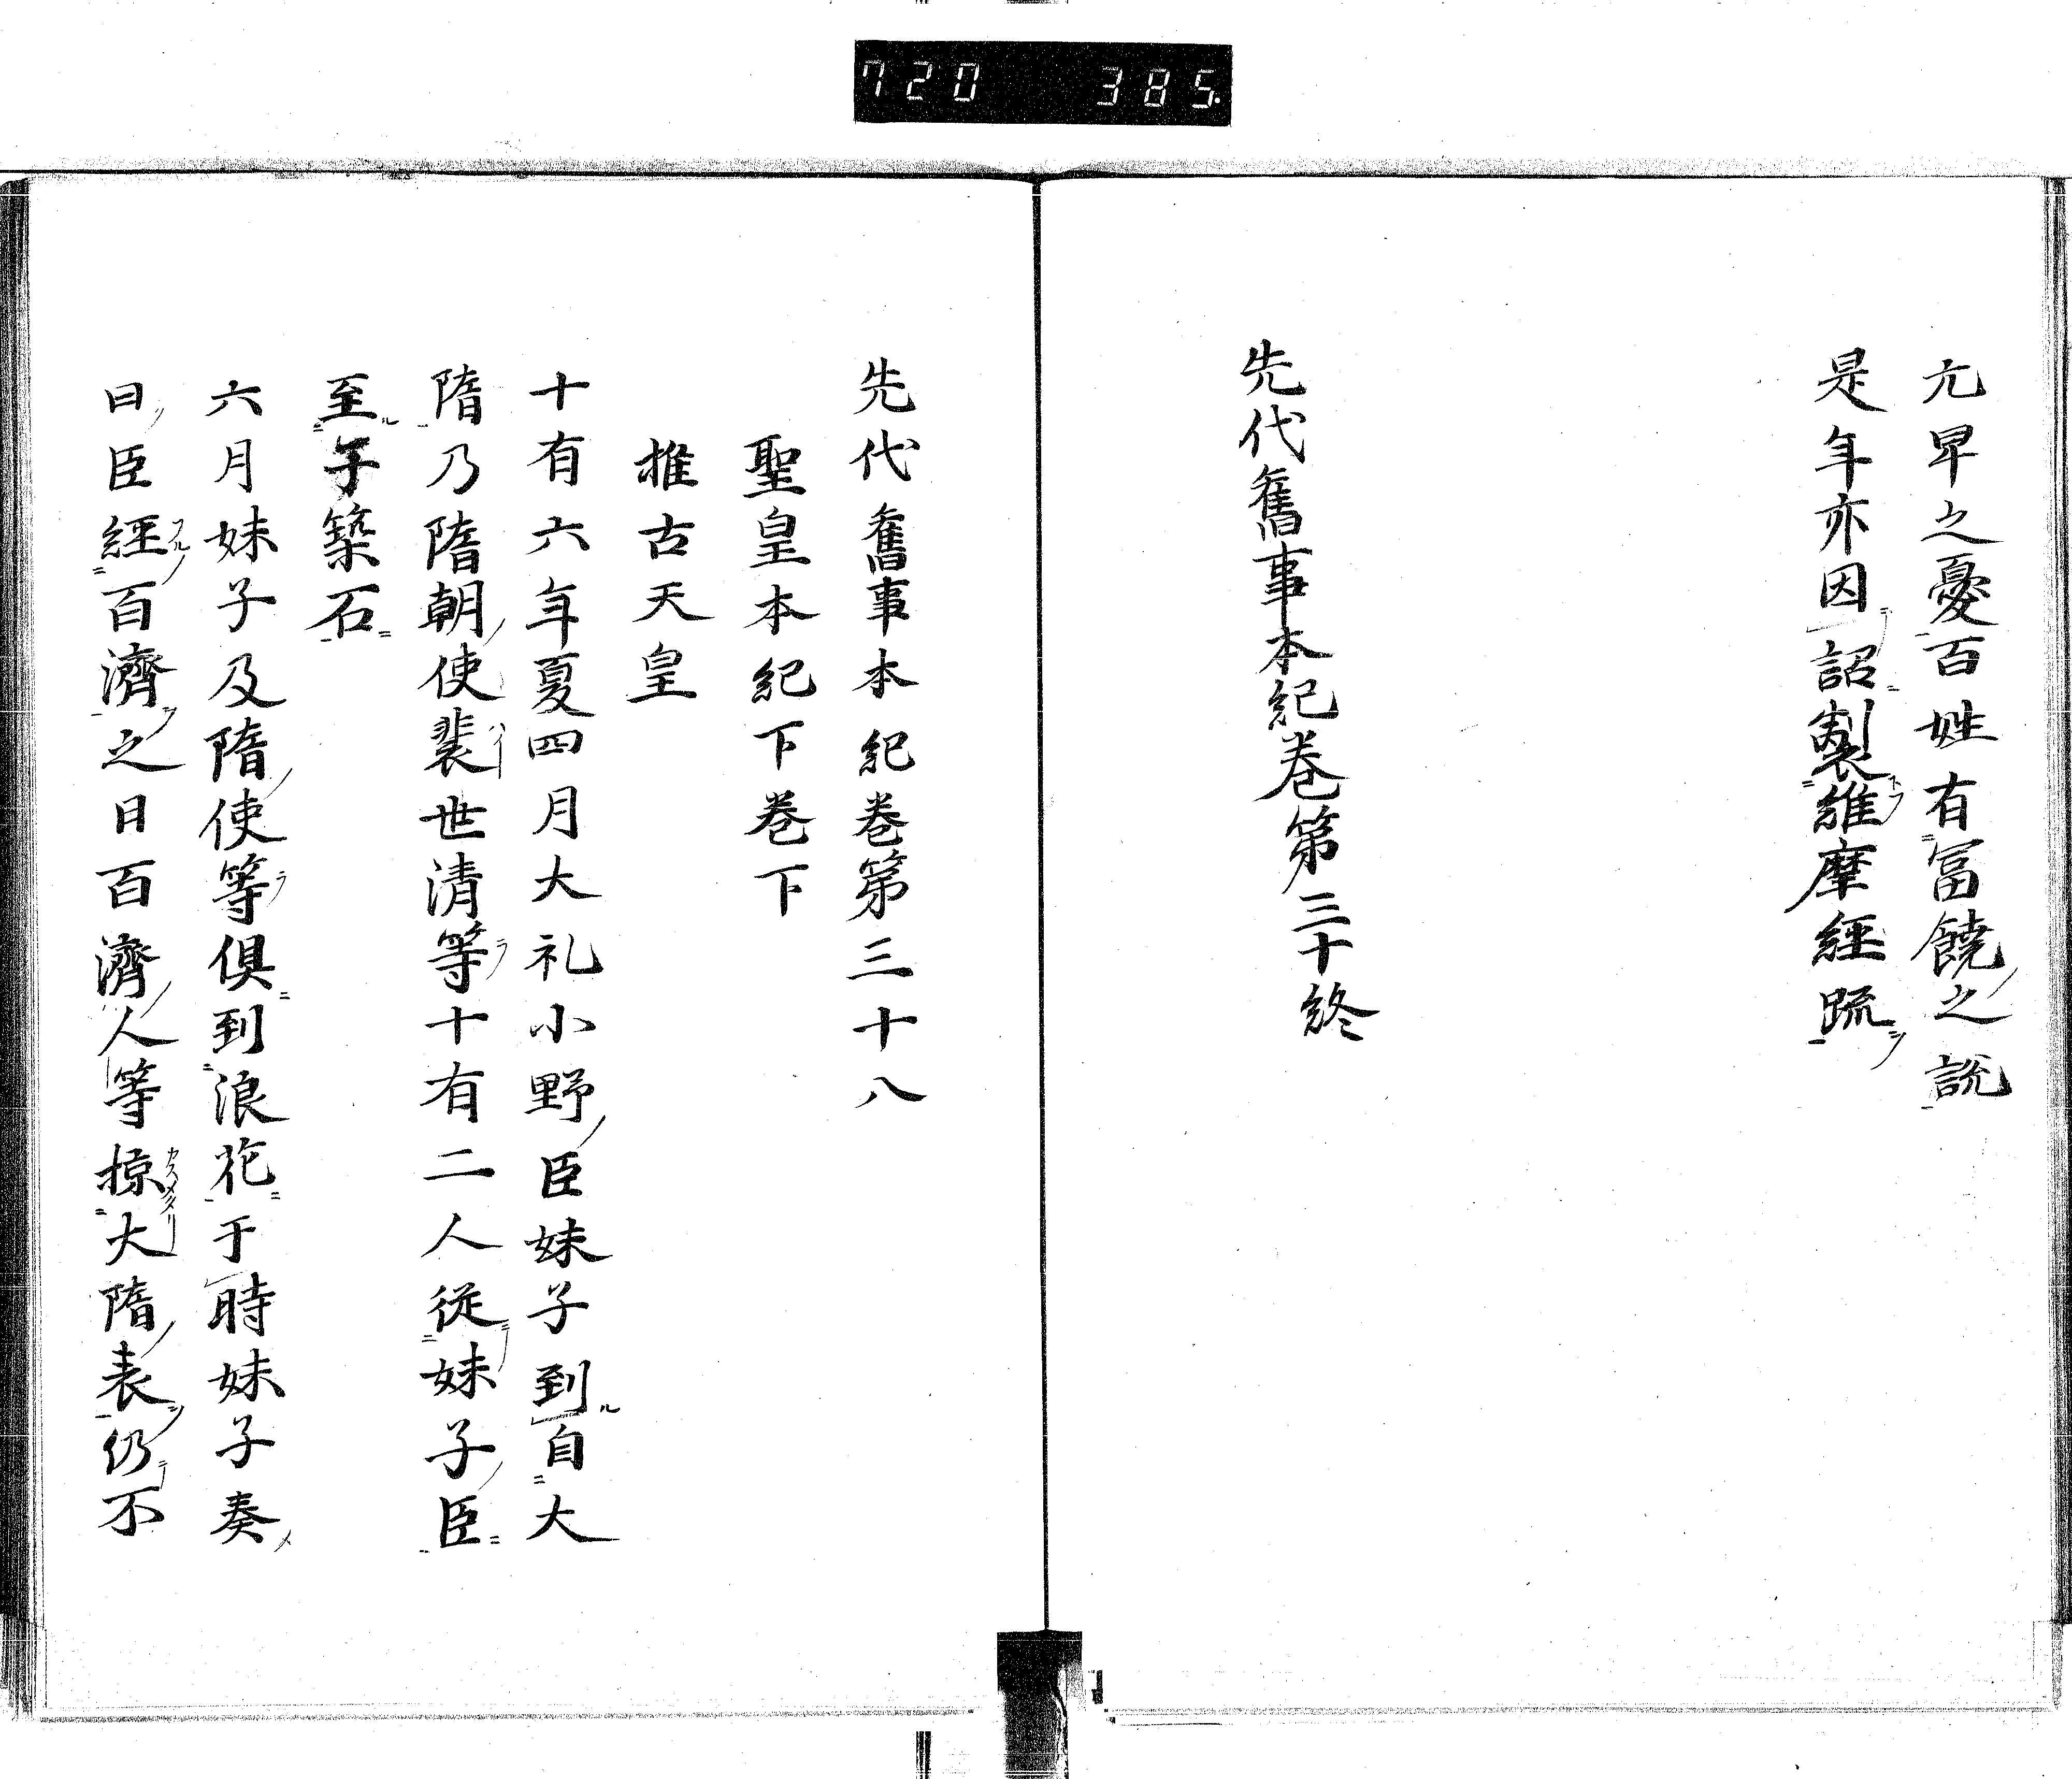 720 385.
亢旱之憂百姓有冨饒之説
是年亦因詔製維摩經疏
先代舊事本紀卷第三十終
先代舊事本紀卷第三十八
聖皇本紀下卷下
推古天皇
十有六年夏四月大礼小野臣妹子到自大
隋乃隋朝使裴世清等十有二人從妹子臣
至于築石
六月妹子及隋使等俱到浪花于時妹子奏
曰臣經百濟之日百濟人等掠大隋表仍不